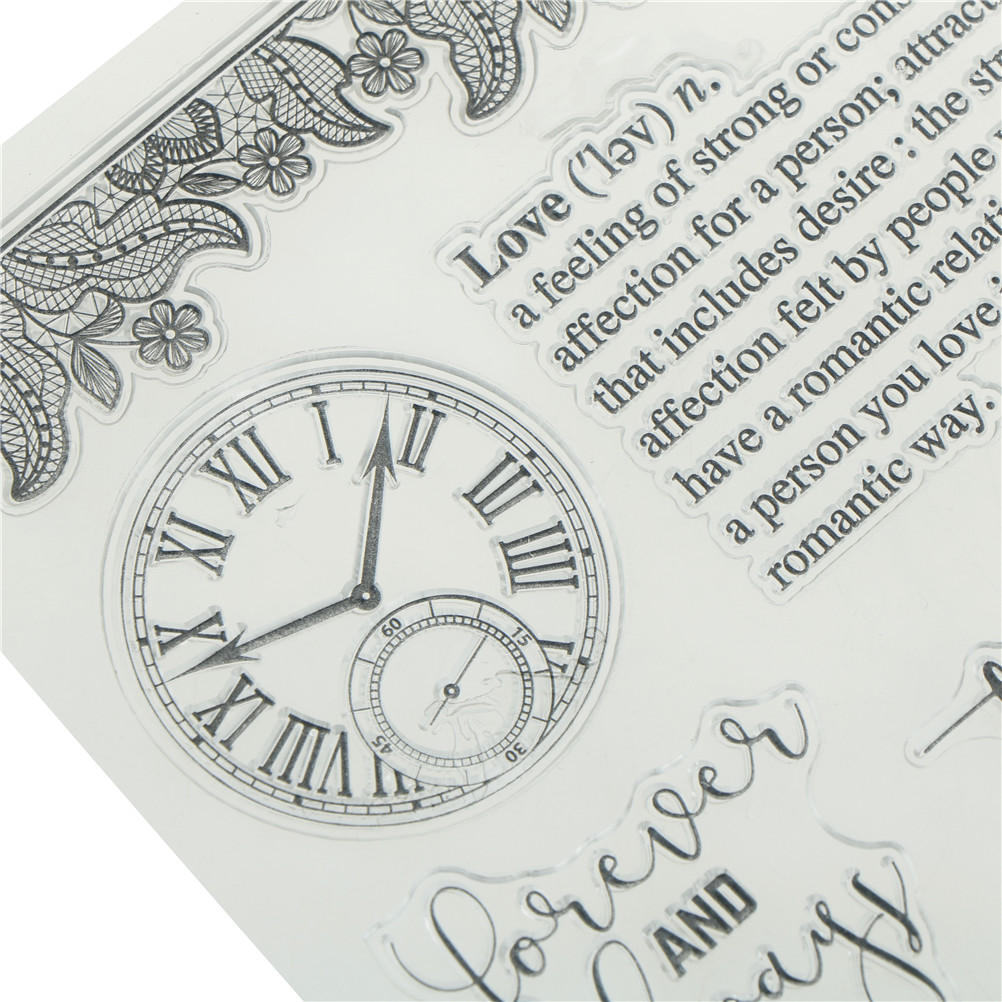 Love ('ləv) n.
a feeling of strong or
affection for a person;
that includes desire : the
affection felt by people
have a romantic
a person you love
romantic way.
XII
I
II
III
IIII
XI
X
IX
VIII
VII
60
15
45
30
forever
AND